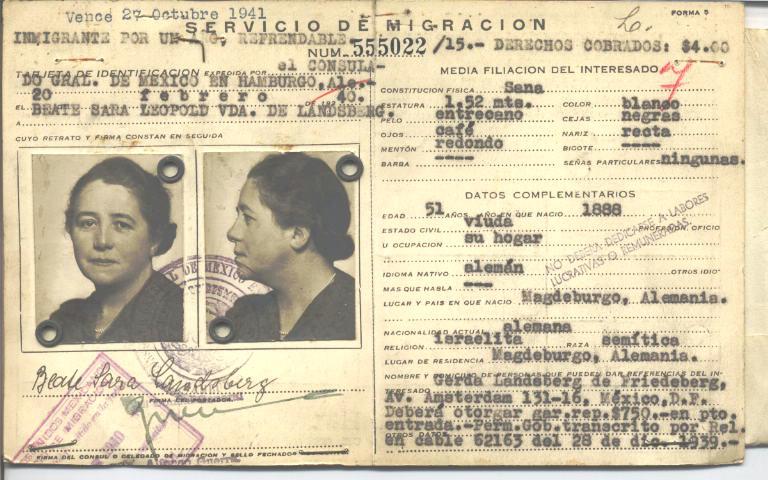 Vence 27 Octubre 1941
SERVICIO DE MIGRACION
FORMA 5
INMIGRANTE POR UN REFRENDABLE
NUM. 555022 /15.- DERECHOS COBRADOS: $4.00
TARJETA DE IDENTIFICACION EXPEDIDA POR el CONSULA-
DO GRAL. DE MEXICO EN HAMBURGO, Ale.-
EL 20 febrero DE 40.
A BEATE SARA LEOPOLD VDA. DE LANDSBERG.
CUYO RETRATO Y FIRMA CONSTAN EN SEGUIDA
Beate Sara Landsberg
FIRMA DEL PORTADOR
FIRMA DEL CONSUL O DELEGADO DE MIGRACION Y SELLO FECHADOR
MEDIA FILIACION DEL INTERESADO
CONSTITUCION FISICA Sana
ESTATURA 1.52 mts. COLOR blanco
PELO entrecano CEJAS negras
OJOS café NARIZ recta
MENTÓN redondo BIGOTE ----
BARBA ---- SEÑAS PARTICULARES ningunas.
DATOS COMPLEMENTARIOS
EDAD 51 AÑOS, AÑO EN QUE NACIO 1888
ESTADO CIVIL viuda PROFESION, OFICIO
U OCUPACION su hogar
NO DEBERA DEDICARSE A LABORES
LUCRATIVAS O REMUNERADAS.
IDIOMA NATIVO alemán OTROS IDIO-
MAS QUE HABLA ---
LUGAR Y PAIS EN QUE NACIO Magdeburgo, Alemania.
NACIONALIDAD ACTUAL alemana
RELIGION israelita RAZA semítica
LUGAR DE RESIDENCIA Magdeburgo, Alemania.
NOMBRE Y DOMICILIO DE PERSONAS QUE PUEDEN DAR REFERENCIAS DEL IN-
TERESADO Gerda Landsberg de Friedeberg,
Av. Amsterdam 131-16, México, D.F.
Deberá otorgar gar.rep.$750.-en pto.
entrada.-Perm.Gob.transcrito por Rel.
OTROS DATOS en cable 62163 del 28 de dic. 1939.-